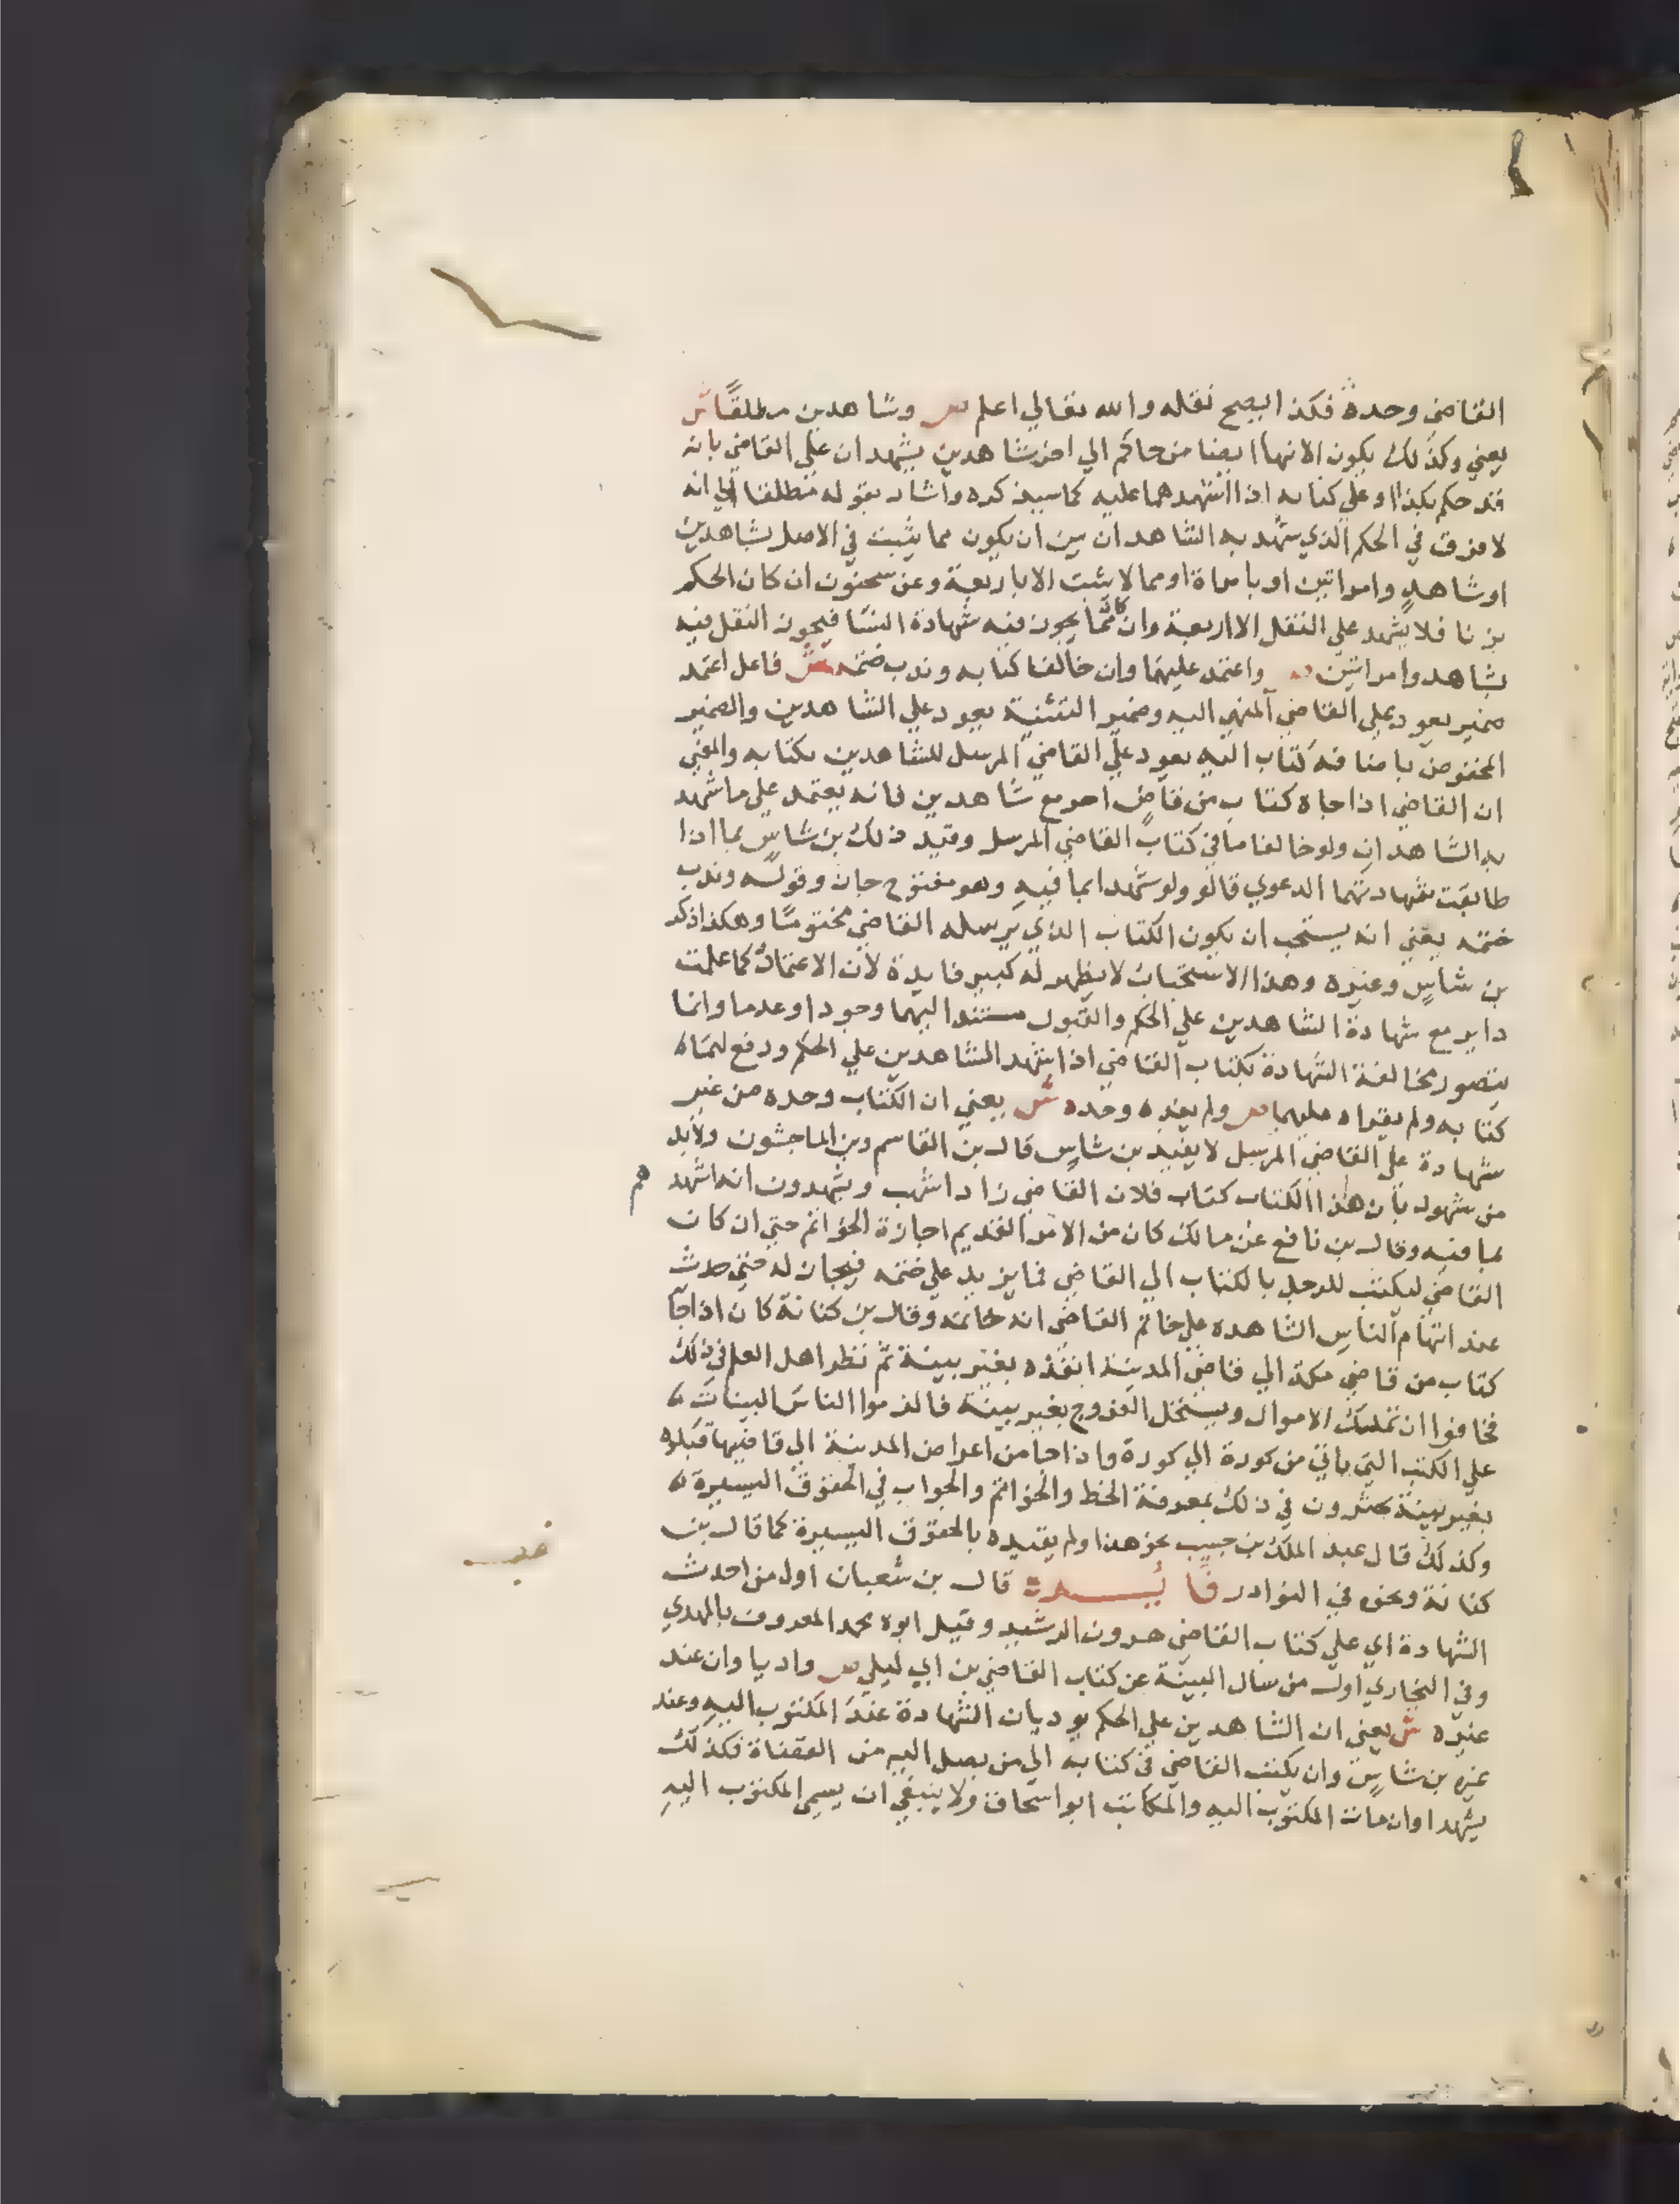 القاضي وحده فكذا يصح نقله والله تعالي اعلم ص وشاهدين مطلقا ش
يعني وكذلك يكون الانهاء ايضا من حاكم الي اخر بشاهدين يشهدان علي القاضي بانه
قد حكم بكذا او علي كتابه اذا اشهدهما عليه كما سيذكره واشار بقوله مطلقا الي انه
لا فرق في الحكم الذي شهد به الشاهدان بين ان يكون مما يثبت في الاصل بشاهدين
او شاهد وامراتين او بامراة او مما لا يثبت الا باربعة وعن سحنون ان كان الحكم
بزنا فلا يشهد علي النقل الا اربعة وان كان مما يجوز فيه شهادة النسا فيجوز النقل فيه
بشاهد وامراتين ص واعتمد عليهما وان خالفا كتابه وندب ختمه ش فاعل اعتمد
ضمير يعود علي القاضي المنهي اليه وضمير التثنية يعود علي الشاهدين والضمير
المخفوض باضافة كتاب اليه يعود علي القاضي المرسل للشاهدين بكتابه والمعني
ان القاضي اذا جاه كتاب من قاض اخر مع شاهدين فانه يعتمد علي ما شهد
به الشاهدان ولو خالفا ما في كتاب القاضي المرسل وقيد ذلك بن شاس بما اذا
طابقت شهادتهما الدعوي قالو ولو شهدا بما فيه وهو مفتوح جاز وقوله وندب
ختمه يعني انه يستحب ان يكون الكتاب الذي يرسله القاضي مختوما وهكذا ذكر
بن شاس وغيره وهذا الاستحباب لا يظهر له كبير فايدة لان الاعتماد كما علمت
داير مع شهادة الشاهدين علي الحكم والقبول مستندا اليهما وجودا وعدما وانما
يتصور مخالفة الشهادة بكتاب القاضي اذا اشهد الشاهدين علي الحكم ودفع لهما
كتابه ولم يقراه عليهما ص ولم يفده وحده ش يعني ان الكتاب وحده من غير
شهادة علي القاضي المرسل لا يفيد بن شاس قال بن القاسم وبن الماجشون ولابد
من شهود بان هذا الكتاب كتاب فلان القاضي زاد اشهب ويشهدون انه اشهدهم
بما فيه وقال بن نافع عن مالك كان من الامر القديم اجازة الخواتم حتي ان كان
القاضي ليكتب للرجل بالكتاب الي القاضي فما يزيد علي ختمه فيجاز له حتي حدث
عند اتهام الناس الشاهده علي خاتم القاضي انه خاتمه وقال بن كنانة كان اذا جا
كتاب من قاضي مكة الي قاضي المدينة انفذه بغير بينة ثم نظر اهل العلم في ذلك
فخافوا ان تملك الاموال ويستحل الفروج بغير بينة فالزموا الناس البينات
علي الكتب التي ياتي من كورة الي كورة واذا جا من اعراض المدينة الي قاضيها قبلوه
بغير بينة يجتزون في ذلك بمعرفة الخط والخواتم والجواب في الحقوق اليسيرة
وكذلك قال عبد الملك بن حبيب نحو هذا ولم يقيده بالحقوق اليسيرة كما قال بن
كنانة ونحوه في النوادر فايدة قال بن شعبان اول من احدث
الشهادة اي علي كتاب القاضي هرون الرشيد وقيل ابوه محمد المعروف بالمهدي
وفي البخاري اول من سال البينة عن كتاب القاضي بن ابي ليلي ص واديا وان عند
غيره ش يعني ان الشاهدين علي الحكم يوديان الشهادة عند المكتوب اليه وعند
غيره بن شاس وان يكتب القاضي في كتابه الي من يصل اليه من القضاة فكذلك
يشهدا وان مات المكتوب اليه والمكاتب ابو اسحاق ولا ينبغي ان يسمي المكتوب اليه